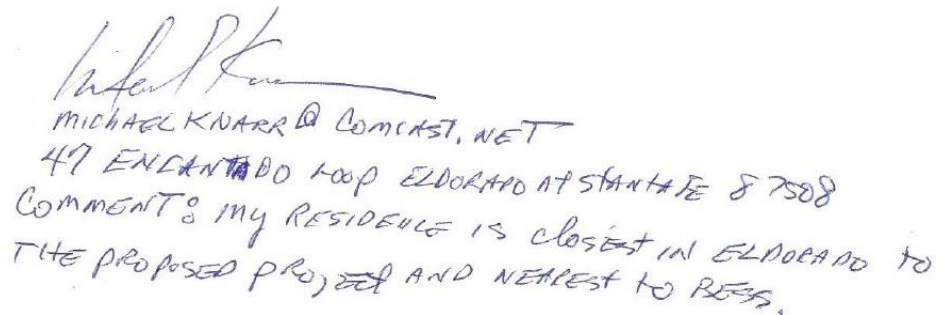 MICHAELKNARR@COMCAST.NET
47 ENCANTADO LOOP ELDORADO AT SANTA FE 87508
COMMENT: MY RESIDENCE IS CLOSEST IN ELDORADO TO
THE PROPOSED PROJECT AND NEAREST TO BESS.